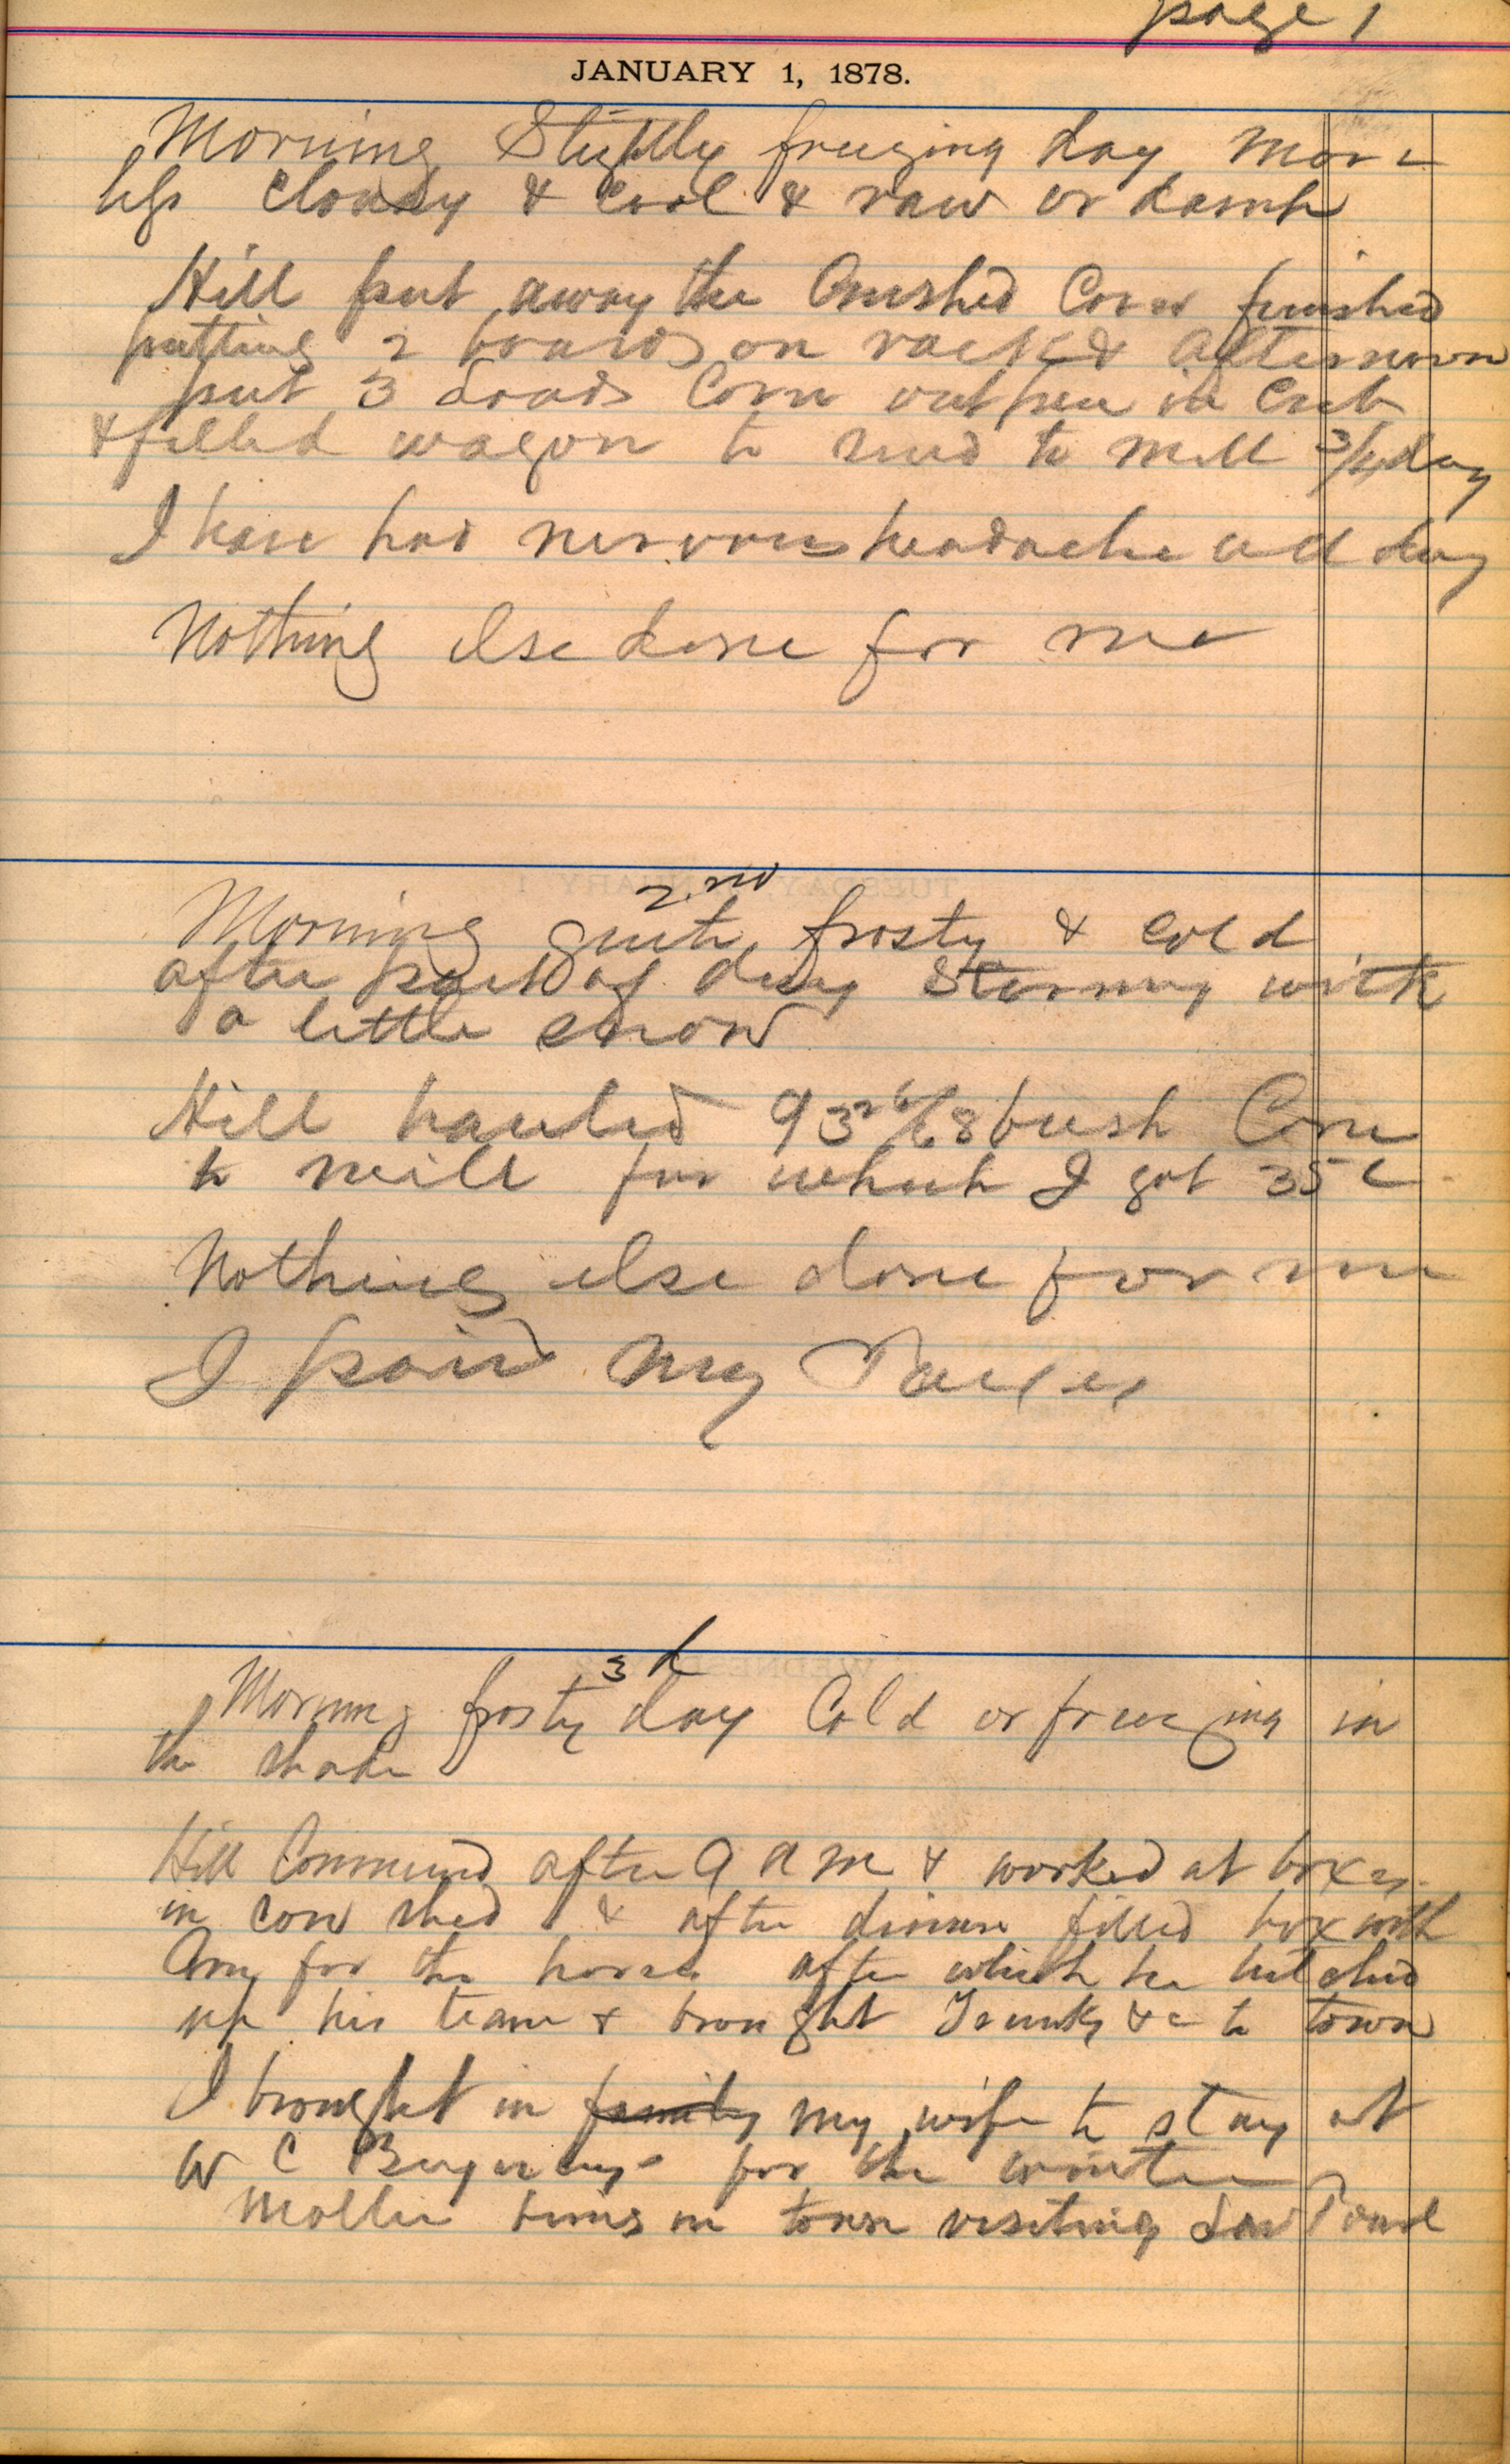 page 1
JANUARY 1, 1878.
Morning Slightly freezing day more
less Cloudy & Cool & raw or damp
Hill put away the Crushed Corn finished
putting 2 boards on rack & afternoon
put 3 Loads Corn out pen in Crib
& filled wagon to send to Mill 3/4 day
I have had nervous headache all day
Nothing Else done for me
2nd
Morning quite frosty & cold
after part of day Stormy with
a little snow
Hill hauled 93 26/68 bush Corn
to mill for which I got 35 c
Nothing else done for me
I paid my Taxes
3d
Morning frosty day Cold or freezing in
the shade
Hill Commenced after 9 am & worked at boxes
in cow shed & after dinner filled box with
for the horses after which he hitched
up his team & brought Trunks &c to town
I brought in family my wife to stay at
W C for the winter
Mollie being in town visiting